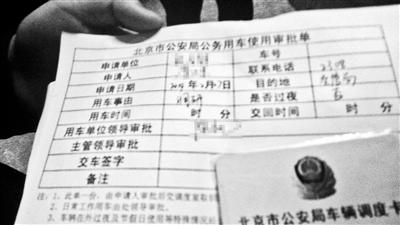 北京市公安局公务用车使用审批单
申请单位 车号
申请人 联系电话
申请日期 月7日 目的地
用车事由 调研 是否过夜 否
用车时间 时 分 交回时间 时 分
用车单位领导审批
主管领导审批
交车签字
备注
注：1、此单一份，由申请人审批后交调度室取
2、日常工作用车由处领导审批。
3、车辆在外过夜及节假日使用等特殊情况
北京市公安局车辆调度卡